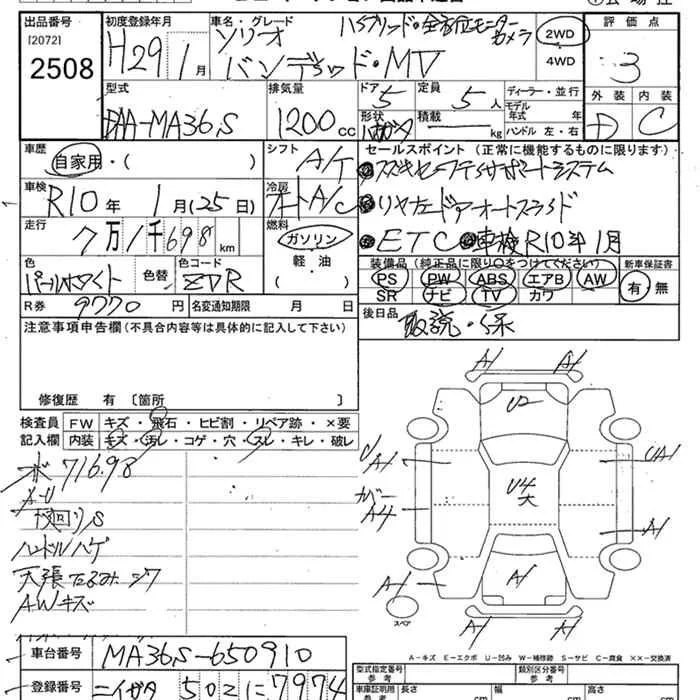 出品番号
[2072]
2508
初度登録年月
H29 1月
車名・グレード
ソリオ
ハイブリッド・全方位モニター
カメラ
バンデッド・MV
2WD
4WD
評価点
3
型式
DAA-MA36S
排気量
1200cc
ドア
5
定員
5人
形状
積載
kg
ディーラー・並行
モデル
年式 年
ハンドル 左・右
外装
内装
D
C
車歴
自家用・( )
シフト
A/T
セールスポイント(正常に機能するものに限ります)
スズキセーフティサポートシステム
車検
R10年 1月(25日)
冷房
オートA/C
リヤ左ドアオートスライド
走行
7万1千698km
燃料
ガソリン
軽・油
ETC 車検R10年1月
色
パールホワイト
色替
色コード
ZVR
装備品(純正品に限り○をつけてください)
新車保証書
PS PW ABS エアB AW
SR ナビ TV カワ
有・無
R券 9770円
名変通知期限 月 日
後日品
取説・保
注意事項申告欄(不具合内容等は具体的に記入して下さい)
修復歴 有〔箇所 〕
検査員
記入欄
FW キズ・飛石・ヒビ割・リペア跡・×要
内装 キズ・汚レ・コゲ・穴・スレ・キレ・破レ
71698
A・U
ハンドルハゲ
天張たるみ・シワ
AWキズ
A1
A1
U2
U
A1
UA1
U4
大
カバー
A4
A1
A1
A1
A1
A1
スペア
A-キズ E-エクボ U-凹み W-補修跡 S-サビ C-腐食 ××-交換済
車台番号
MA36S-650910
登録番号
ニイガタ 502 に 7974
型式指定番号
参考
類別区分番号
参考
車庫証明用
参考
長さ cm
幅 cm
高さ cm